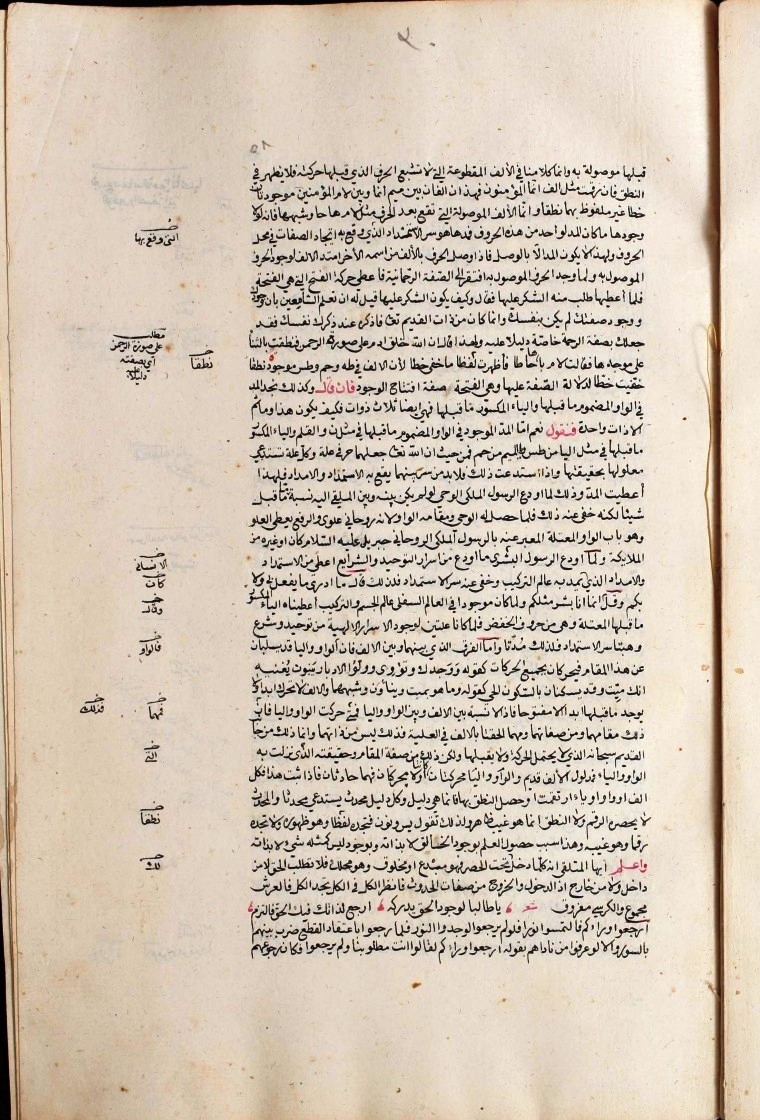 قبلها موصولة به وانما كلامنا في الألف المقطوعة التي لا تشبع الحرف الذي قبلها حركته فلا يظهر في
النطق فان رقمت مثل الف انما المؤمنون فهذان الفان بين ميم انما وبين لام المؤمنين موجودتان
خطا غير ملفوظ بهما نطقا وانما الألف الموصولة التي تقع بعد الحرف مثل لام ها حا وشبهها فانه لولا
وجودها ما كان المد لواحد من هذه الحروف فمدها هو سر الاستمداد الذي وقع به ايجاد الصفات في محل
الحروف ولهذا لا يكون المد الا بالوصل فاذا وصل الحرف بالألف من اسمه الآخر امتد الألف لوجود الحرف
الموصول به ولما وجد الحرف الموصول به افتقر الى الصفة الرحمانية فاعطي حركة الفتح التي هي الفتحة
فلما أعطيها طلب منه الشكر عليها فقال وكيف يكون الشكر عليها قيل له ان تعلم السامعين بان وجودك
ووجود صفتك لم يكن بنفسك وانما كان من ذات القديم تعالى فاذكره عند ذكرك نفسك فقد
جعلك بصفة الرحمة خاصة دليلا عليه ولهذا قال ان الله خلق ادم على صورة الرحمن فنطقت بالثناء
على موجدها فقالت لام يا ها حا طا فأظهرت لفظا ما خفي خطا لأن الالف في طه وحم وطس موجود نطقا
خفيت خطا لدلالة الصفة عليها وهي الفتحة صفة افتتاح الوجود فان قال وكذلك نجد المد
في الواو المضموم ما قبلها والياء المكسور ما قبلها فهي ايضا ثلاث ذوات فكيف يكون هذا وما ثم
الا ذات واحدة فنقول نعم اما المد الموجود في الواو المضموم ما قبلها في مثل ن والقلم والياء المكسور
ما قبلها في مثل اليا من طس والميم من حم فمن حيث ان الله تعالى جعلهما حرفي علة وكل علة تستدعي
معلولها بحقيقتها واذا استدعت ذلك فلا بد من سر بينهما يقع به الاستمداد والامداد فلهذا
أعطيت المد وذلك لما اودع الرسول الملكي الوحي لو لم يكن بينه وبين الملقى اليه نسبة ما ما قبل
شيئا لكنه خفي عنه ذلك فلما حصل له الوحي ومقامه الواو لانه روحاني علوي والرفع يعطي العلو
وهو باب الواو المعتلة فعبر عنه بالرسول الملكي الروحاني جبريل عليه السلام كان او غيره من
الملايكة ولما اودع الرسول البشري ما اودع من اسرار التوحيد والشرايع اعطي من الاستمداد
والامداد الذي يمد به عالم التركيب وخفي عنه سر الاستمداد فلذلك قال ما ادري ما يفعل بي ولا
بكم وقل انما انا بشر مثلكم ولما كان موجودا في العالم السفلي عالم الجسم والتركيب أعطيناه الياء المكسور
ما قبلها المعتلة وهي من حروف الخفض فلما كانا علتين لوجود الاسرار الالهية من توحيد وشرع
وهبتا سر الاستمداد فلذلك مدتا واما الفرق الذي بينهما وبين الالف فان الواو واليا قد يسلبان
عن هذا المقام فيحركان بجميع الحركات كقوله ووجدك وتؤوى وولوا الادبار ينبوت يغنيه
انك ميت وقد يسكنان بالسكون الحي كقوله وما هو بميت وينأون وشبههما والالف لا يحرك ابدا ولا
يوجد ما قبلها ابدا الا مفتوحا فاذا لا نسبة بين الالف وبين الواو واليا فمهما حركت الواو واليا فان
ذلك مقامهما ومن صفاتهما ومهما الحقتا بالالف في العلية فذلك ليس من ذاتهما وانما ذلك من جانب
القديم سبحانه الذي لا يحتمل الحركة ولا يقبلها ولكن ذلك من صفة المقام وحقيقته الذي نزلت به
الواو والياء فمدلول الألف قديم والواو واليا محركتان كانتا اولا محركان فهما حادثان فاذا ثبت هذا فكل
الف او واو او ياء ارتقمت او حصل النطق بها فانما هي دليل وكل دليل محدث يستدعي محدثا والمحدث
لا يحصره الرقم ولا النطق انما هو غيب ظاهر ولذلك تقول يس ون فتجده لفظا وهو ظهوره ولا تجده
رقما وهو غيبه وهذا سبب حصول العلم بوجود الخالق لا بذاته وبوجود ليس كمثله شيء لا بذاته
واعلم أيها المتلقي انه كلما دخل تحت الحصر فهو مبتدع او مخلوق وهو محلك فلا تطلب الحق لا من
داخل ولا من خارج اذ الدخول والخروج من صفات الحدوث فانظر الكل في الكل تجد الكل فالعرش
مجموع والكرسي مفروق شعر يا طالبا لوجود الحق يدركه ارجع لذاتك فيك الحق فالتزم
ارجعوا وراءكم فالتمسوا نورا فلو لم يرجعوا لوجدوا النور فلما رجعوا باعتقاد القطع ضرب بينهم
بالسور والا لو عرفوا من ناداهم بقوله ارجعوا وراءكم لقالوا انت مطلوبنا ولم يرجعوا فكان رجوعهم
التي وقع بها
مطلب
على صورة الرحمن
اي بصفته
دليلا عليه
نطقا
الانساني
كان
وقال
فالواو
فمهما
فذلك
التي
نطقا
لك